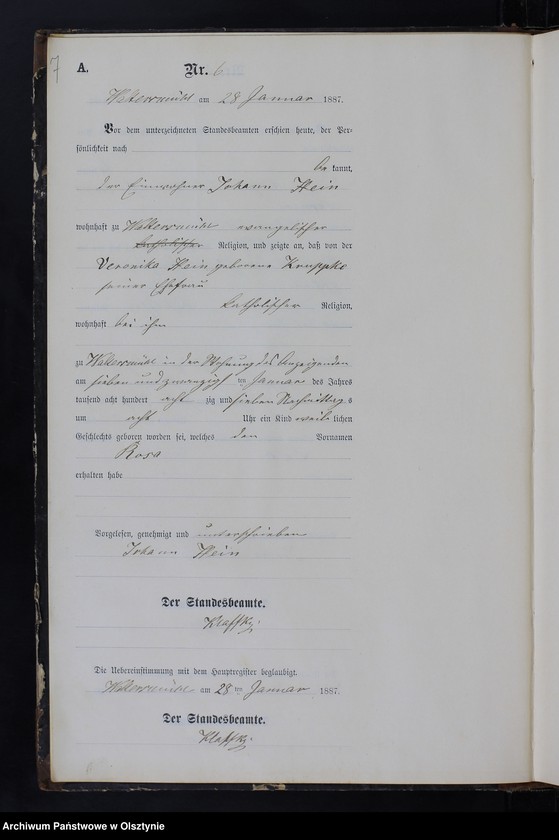 7
A. Nr. 6
Waltersmühl am 28 Januar 1887.
Vor dem unterzeichneten Standesbeamten erschien heute, der Per-
sönlichkeit nach
be kannt,
der Einwohner Johann Hein
wohnhaft zu Waltersmühl evangelischer
katholischer Religion, und zeigte an, daß von der
Veronika Hein geborene Kruppke
seiner Ehefrau
katholischer Religion,
wohnhaft bei ihm
zu Waltersmühl in der Wohnung des Anzeigenden
am sieben und zwanzigsten Januar des Jahres
tausend acht hundert acht zig und sieben Nachmittags
um acht Uhr ein Kind weib lichen
Geschlechts geboren worden sei, welches den Vornamen
Rosa
erhalten habe
Vorgelesen, genehmigt und unterschrieben
Johann Hein
Der Standesbeamte.
Klaffky.
Die Uebereinstimmung mit dem Hauptregister beglaubigt.
Waltersmühl am 28ten Januar 1887.
Der Standesbeamte.
Klaffky.
Archiwum Państwowe w Olsztynie